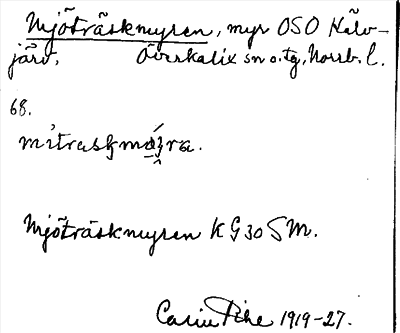 Mjöträskmyren, myr OSO Kälv-
järv, Överkalix sn o. tg, Norrb. l.
68.
Mjöträskmyren KG30 SM.
Carin Pihl 1919-27.